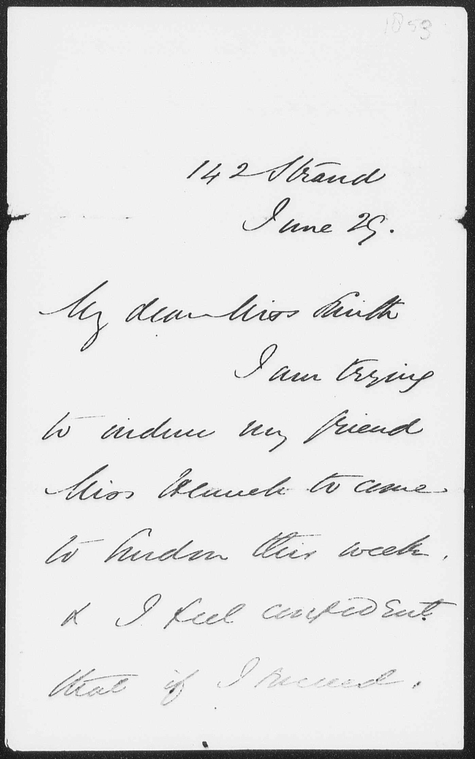 1853
142 Strand
June 29.
My dear Miss Smith
I am trying
to induce my friend
Miss to come
to London this week.
& I feel confident
that if I succeed.